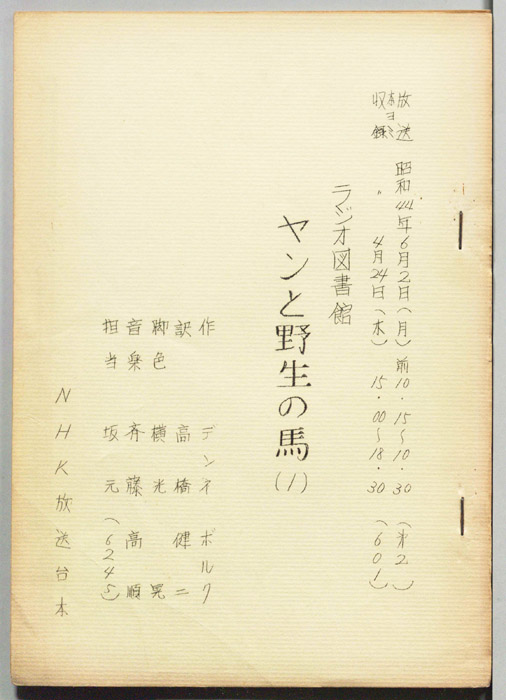 放送 昭和44年6月2日(月) 前10.15〜10.30 (第2)
本ヨミ
収録 〃 4月24日(木) 15.00〜18.30 (601)
ラジオ図書館
ヤンと野生の馬(1)
作 デンネボルク
訳 高橋健二
脚色 横光晃
音楽 斉藤高順
担当 坂元(6245)
NHK放送台本